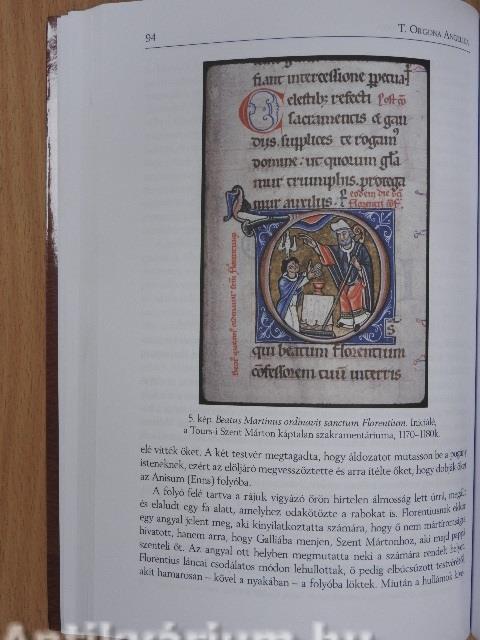 94
T. Orgona Angelika
fiant intercessione ꝑpetua
Celestibꝫ refecti
sacramentis et gau
diis supplices te rogamꝰ
domine · ut quorum gl̄a
mur triumphis · protega
mur auxiliis ·
qui beatum florentium
cōfessorem tuū
5. kép. Beatus Martinus ordinavit sanctum Florentium. Iniciálé,
a Tours-i Szent Márton káptalan szakramentáriuma, 1170–1180k.
elé vitték őket. A két testvér megtagadta, hogy áldozatot mutasson be a pogány
isteneknek, ezért az elöljáró megvesszőztette és arra ítélte őket, hogy dobják őket
az Anisum (Enns) folyóba.
A folyó felé tartva a rájuk vigyázó őrön hirtelen álmosság lett úrrá, megállt
és elaludt egy fa alatt, amelyhez odakötözte a rabokat is. Florentiusnak ekkor
egy angyal jelent meg, aki kinyilatkoztatta számára, hogy ő nem mártíromságra
hivatott, hanem arra, hogy Galliába menjen, Szent Mártonhoz, aki majd pappá
szenteli őt. Az angyal ott helyben megmutatta neki a számára rendelt helyet.
Florentius láncai csodálatos módon lehullottak, ő pedig elbúcsúzott testvérétől,
akit hamarosan – kővel a nyakában – a folyóba löktek. Miután a hullámok
Antikvárium.hu